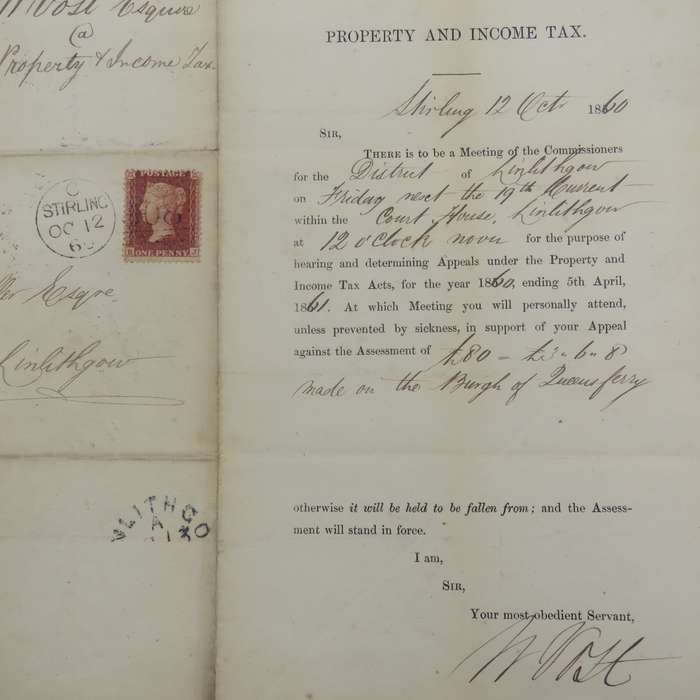 Esquire
@
Property & Income Tax.
STIRLING
OC 12
60
POSTAGE
ONE PENNY
Esqre
Linlithgow
A
PROPERTY AND INCOME TAX.
Stirling 12 Octr 1860
SIR,
THERE is to be a Meeting of the Commissioners
for the District of Linlithgow
on Friday next the 19th Current
within the Court House, Linlithgow
at 12 o'Clock noon for the purpose of
hearing and determining Appeals under the Property and
Income Tax Acts, for the year 1860, ending 5th April,
1861. At which Meeting you will personally attend,
unless prevented by sickness, in support of your Appeal
against the Assessment of £80 = £3 " 6 " 8
made on the Burgh of Queensferry
otherwise it will be held to be fallen from; and the Assess-
ment will stand in force.
I am,
SIR,
Your most obedient Servant,